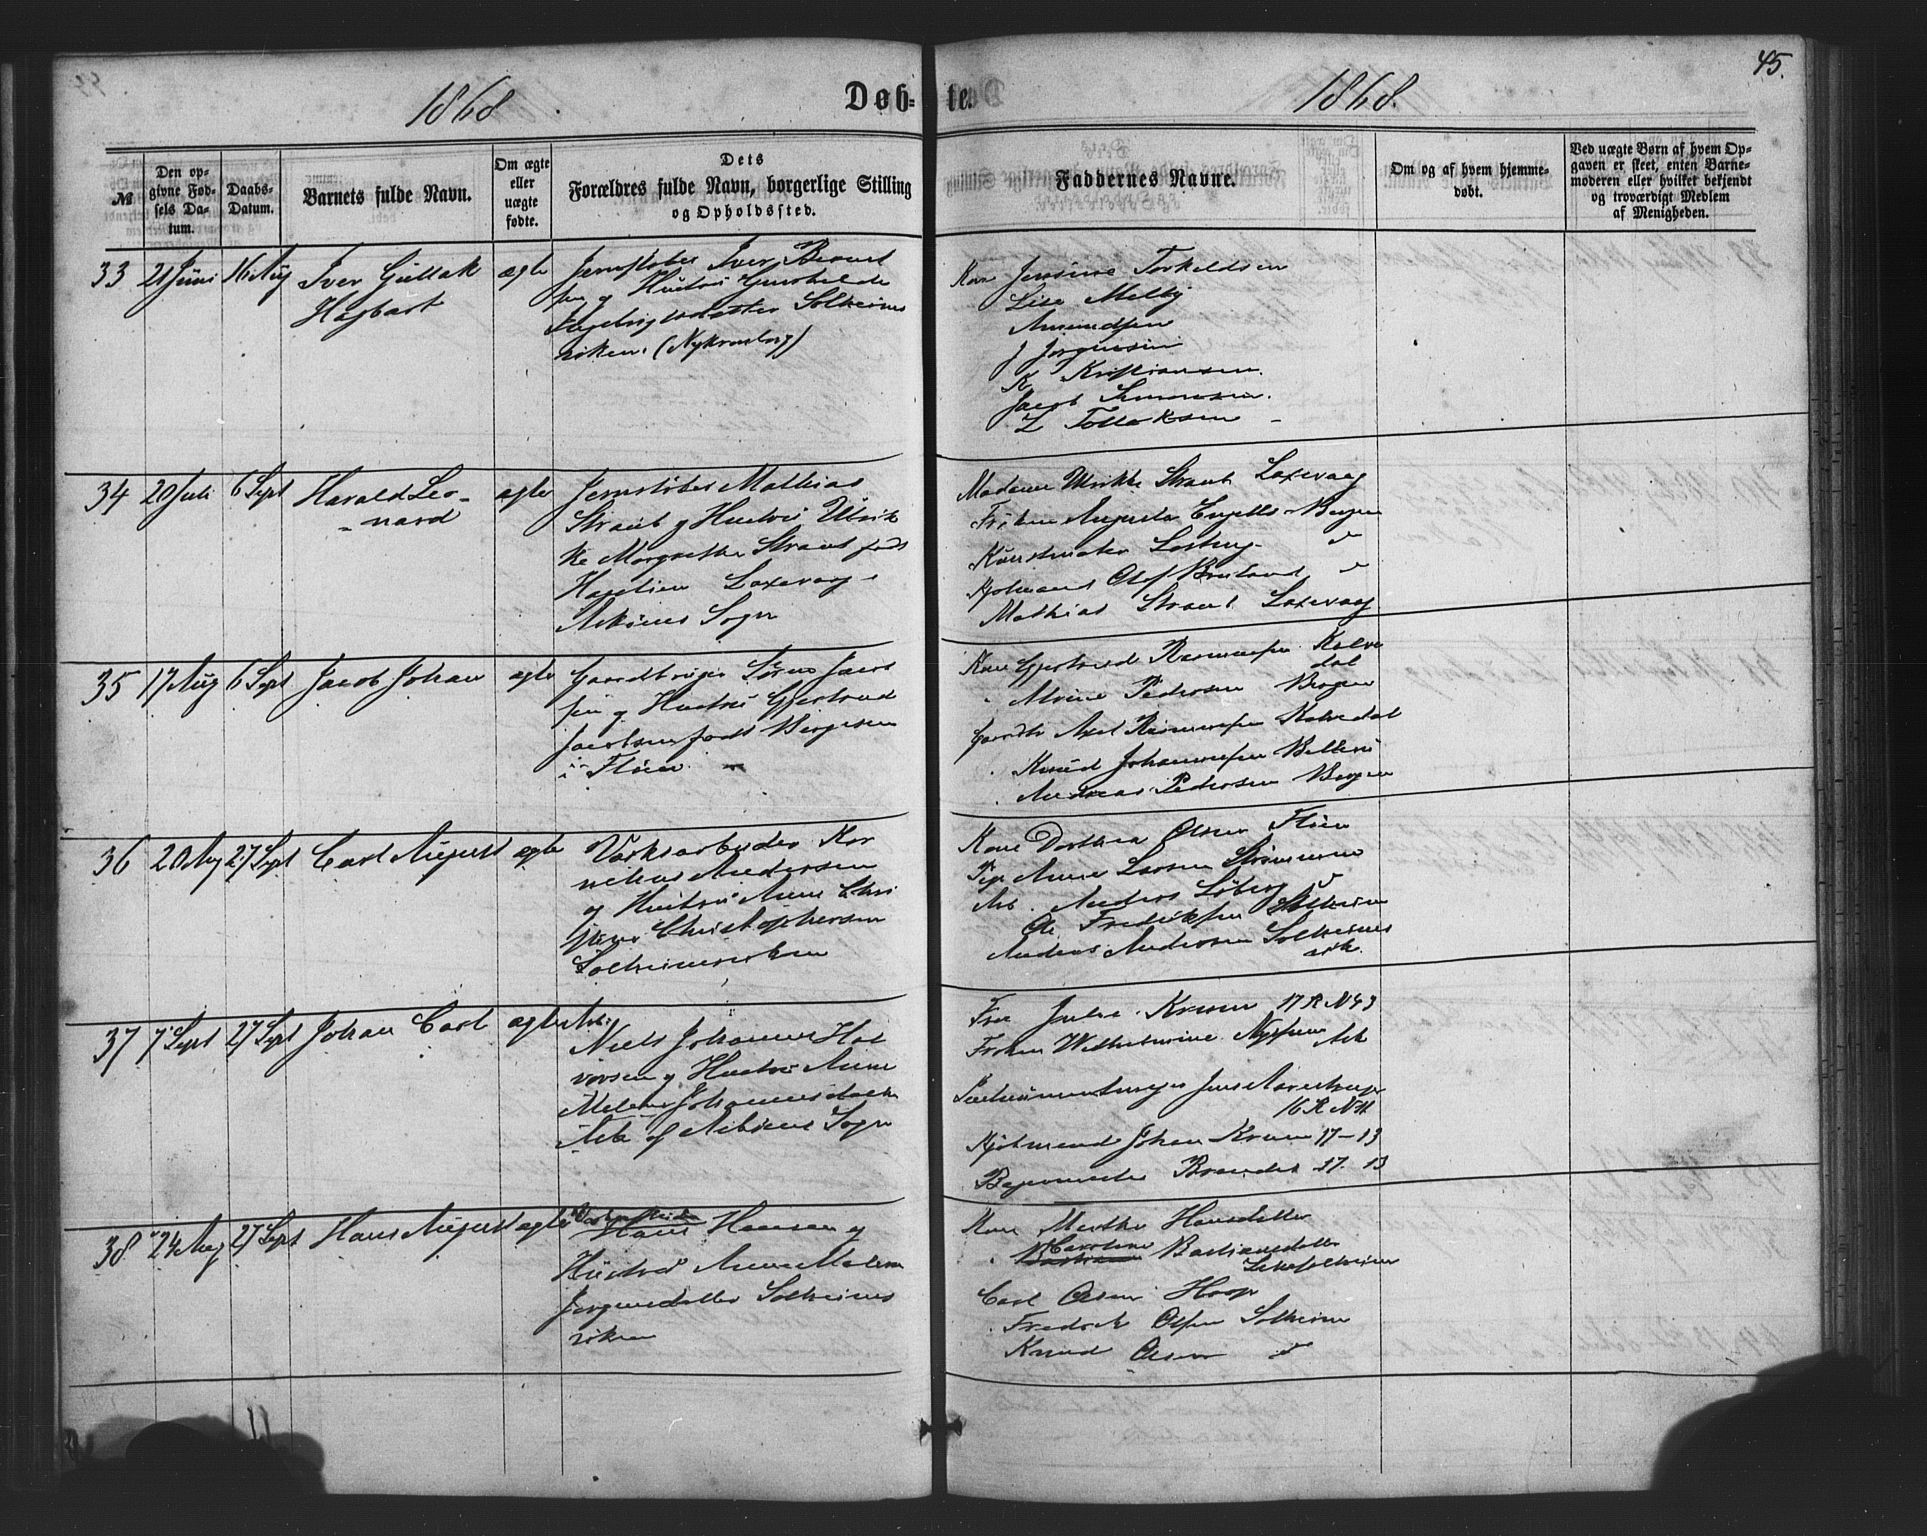 1868
Døb-
te.
1868.
45.
№
Den op-
givne Fød-
sels Da-
tum.
Daabs-
Datum.
Barnets fulde Navn.
Om ægte
eller
uægte
fødte.
Dets
Forældres fulde Navn, borgerlige Stilling
og Opholdssted.
Faddernes Navne.
Om og af hvem hjemme-
døbt.
Ved uægte Børn af hvem Op-
gaven er skeet, enten Barne-
moderen eller hvilket bekjendt
og troværdigt Medlem
af Menigheden.
33 21 Juni 16 Aug Iver Gullak ægte Jernstøber Iver Bernt
Hagbart sen og Hustru
Ingeborg Solheims
viken. (Nykronborg)
Kone Jensine Torkeldsen
Lise Melby
Amundsen
J Jørgensen
K Kristiansen.
Jacob Simonsen.
Z Tollaksen
34 20 Juli 6 Sept Harald Leo- ægte Jernstøber Mathias
nard Straut og Hustru Ulrik
ke Margrethe Straut født
Laxevaag
Askøens Sogn
Madame Ulrikke Straut Laxevaag
Frøken Augusta Engells Bergen
Kunstmaler Losting
Kjøbmand Olaf
Mathias Straut Laxevaag
35 17 Aug 6 Sept Jacob Johan ægte Gaardbruger Søren Jacob
sen og Hustru Gjertrud
Jacobsen født Bergesen
i Fløen
Kone Gjertrud Rasmussen Kalve
dal
Pedersen Bergen
Gaardbr Axel Rasmussen Kalvedal
Knud Johannessen
Andreas Pedersen Bergen
36 20 Aug 27 Sept Carl August ægte Værksarbeider Kor
nelius Andersen
og Hustru Anne Chri
stine Christophersen
Solheimsviken
Kone Dorthea Olsen Fløen
Pige Anne Larsen
Arb. Anders Løberg
Ole Fredriksen Solheim
Anders Andersen Solheims
vik.
37 7 Sept 27 Sept Johan Carl ægte Arb.
Niels Johannes Hal
vorsen og Hustru Anne
Malene Johannesdatter
Ask af Askøens Sogn
Fru Julie Krum 17 R N 43
Frøken Wilhelmine Ask
Jens Aarestrup
16 R N 11
Kjøbmand Johan Krum 17-13
Bagermester 17. 13
38 24 Aug 27 Sept Hans August ægte
Hans Hansen og
Hustru Anne Malene
Jørgensdatter Solheims
viken
Kone Marthe Hansdatter
Caroline
Bastiansdatter
Carl Olsen Hoop
Fredrik Olsen Solheim
Knud Olsen